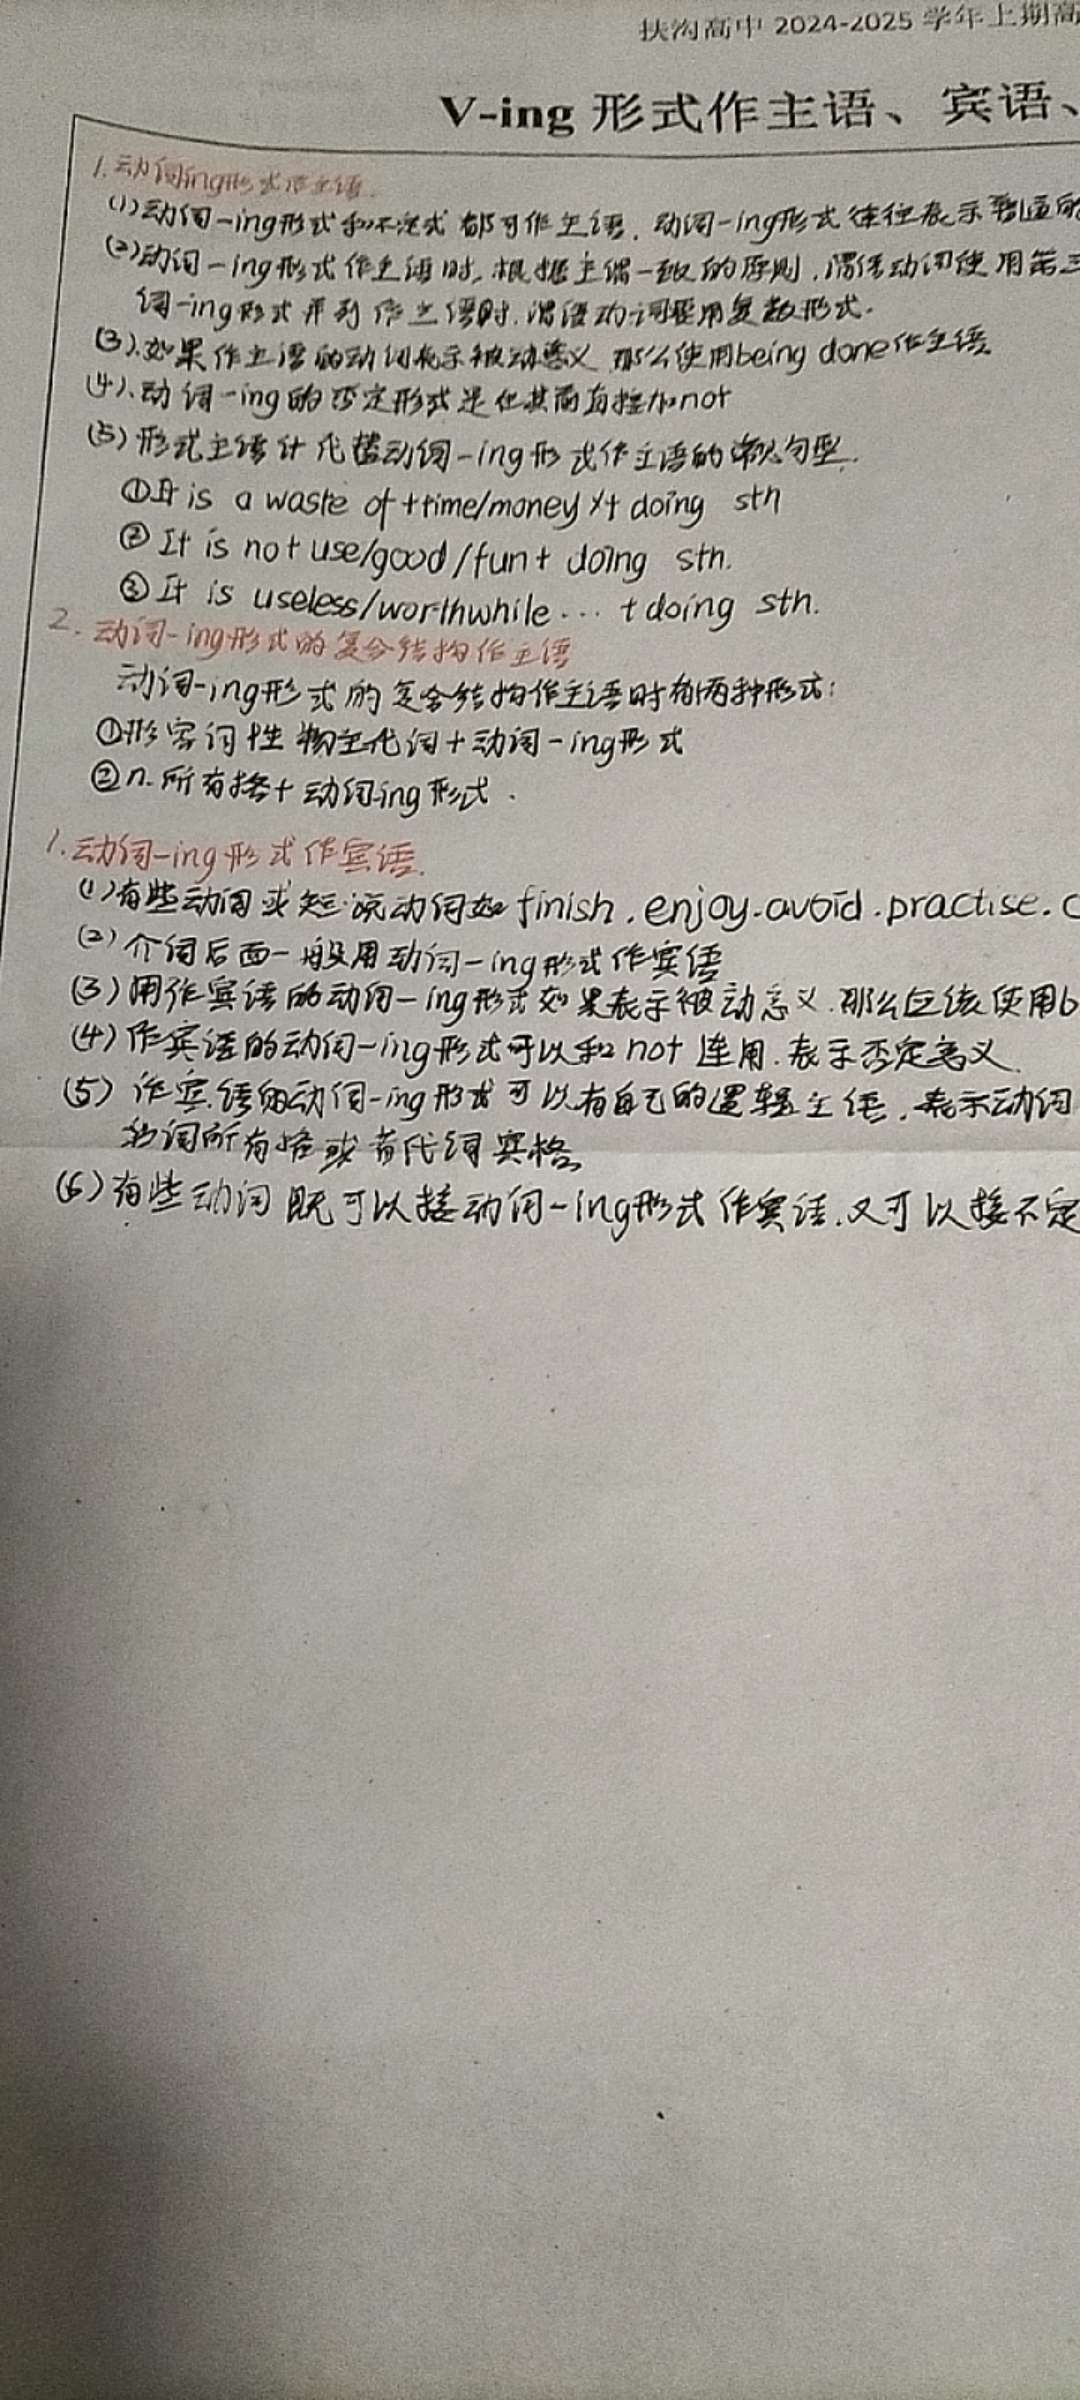 扶沟高中 2024-2025 学年上期高
V-ing 形式作主语、宾语、
1.动词ing形式作主语.
(1)动词-ing形式和不定式都可作主语.动词-ing形式往往表示普遍的
(2)动词-ing形式作主语时,根据主谓一致的原则,谓语动词使用第三
词-ing形式并列作主语时.谓语动词要用复数形式.
(3).如果作主语的动词表示被动意义,那么使用being done作主语.
(4)、动词-ing的否定形式是在其前直接加not
(5)形式主语it代替动词-ing形式作主语的常见句型.
①It is a waste of +time/money X+ doing sth
② It is not use/good/fun+ doing sth.
③ It is useless/worthwhile... +doing sth.
2. 动词-ing形式的复合结构作主语
动词-ing形式的复合结构作主语时有两种形式:
①形容词性物主代词+动词-ing形式
②n.所有格+动词ing形式.
1.动词-ing形式作宾语.
(1)有些动词或短语动词如finish.enjoy.avoid.practise.c
(2)介词后面一般用动词-ing形式作宾语
(3)用作宾语的动词-ing形式如果表示被动意义.那么应该使用b
(4)作宾语的动词-ing形式可以和not连用.表示否定意义.
(5)作宾语的动词-ing形式可以有自己的逻辑主语,表示动词
词所有格或者代词宾格.
(6)有些动词既可以接动词-ing形式作宾语.又可以接不定